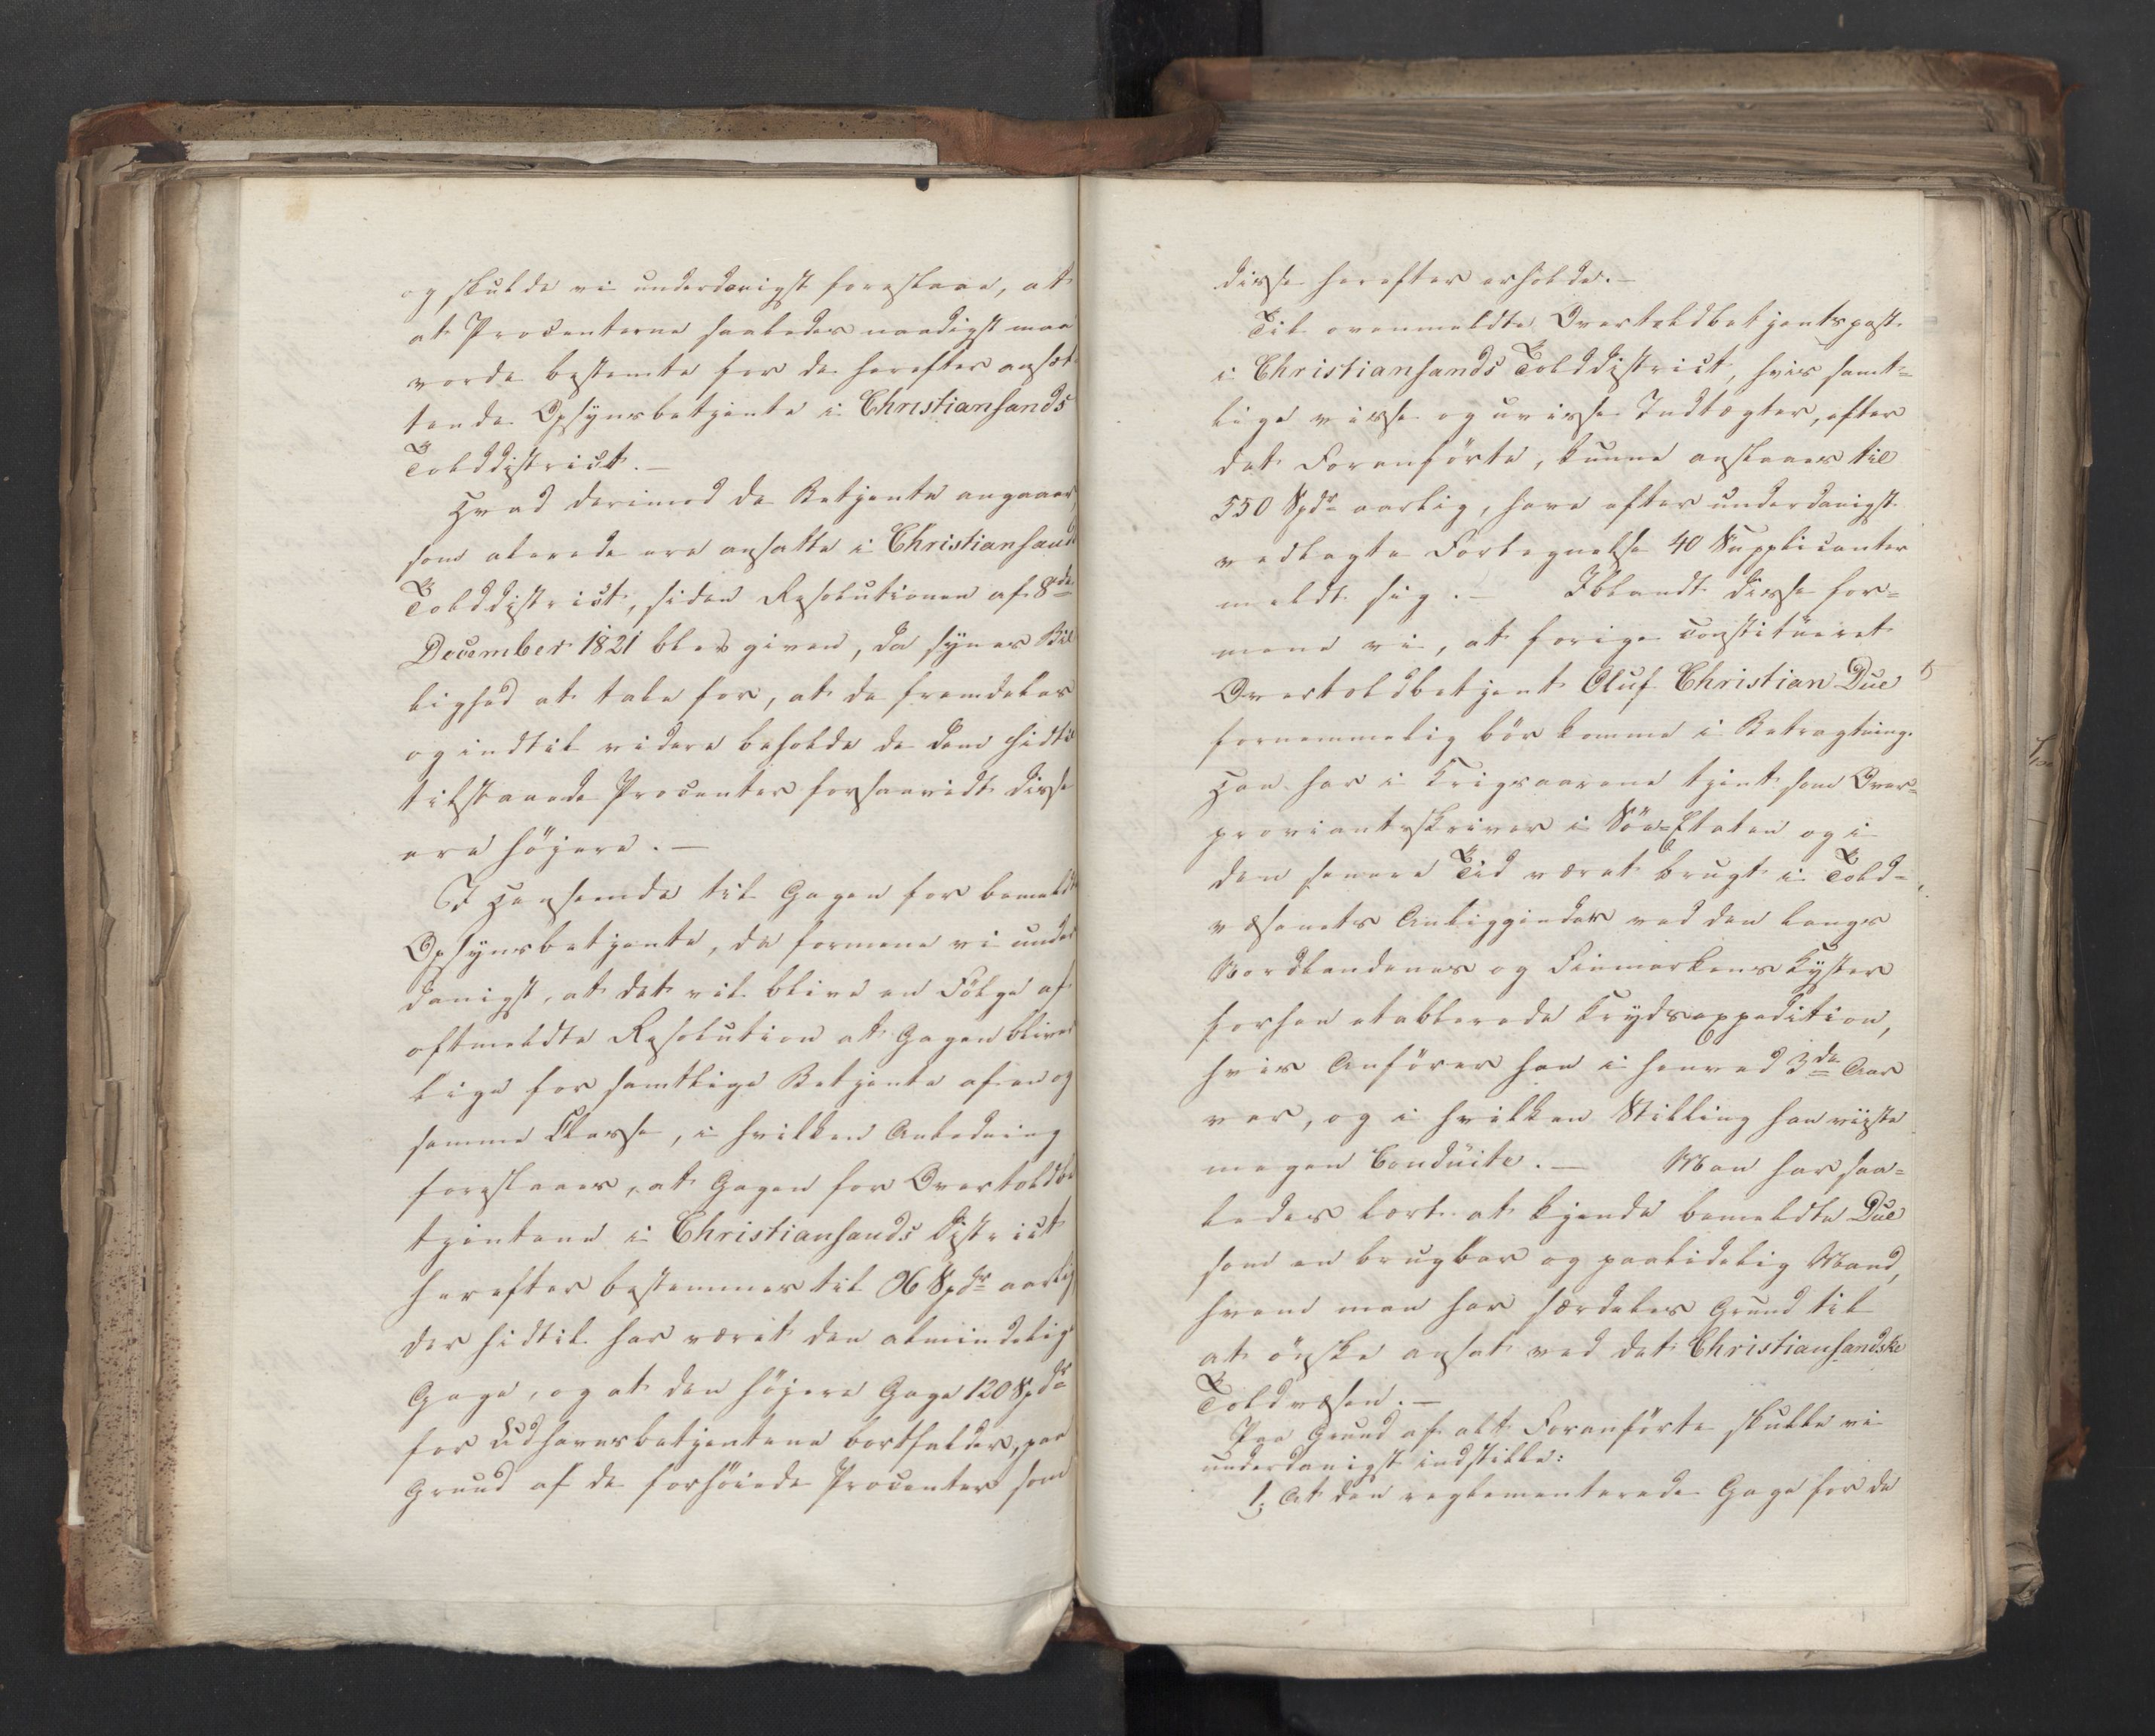 og skulde vi underdanigst foreslaae, at
at Procenterne saaledes naadigst maa
vorde bestemte for de herefter ansæt
tende Opsynsbetjente i Christiansands
Tolddistrict. —
Hvad derimod de Betjente angaaer,
som allerede ere ansatte i Christiansands
Tolddistrict, siden Resolutionen af 8de
December 1821 blev given, da synes Bil
lighed at tale for, at de fremdeles
og indtil videre beholde de dem hidtil
tilstaaede Procenter forsaavidt disse
ere höjere. —
I Henseende til Gagen for bemeldte
Opsynsbetjente, da formene vi under
danigst, at det vil blive en Fölge af
oftmeldte Resolution at Gagen bliver
lige for samtlige Betjente af en og
samme Classe, i hvilken Anledning
foreslaaes, at Gagen for Overtoldbe
tjentene i Christiansands District
herefter bestemmes til 96 Spdr aarlig
der hidtil har været den almindelige
Gage, og at den höjere Gage 120 Spdr
for Udhavnsbetjentene bortfalder, paa
Grund af de forhöiede Procenter som
disse herefter erholde. —
Til ovenmeldte Overtoldbetjentspost
i Christiansands Tolddistrict, hvis samt=
lige visse og uvisse Indtægter, efter
det Foranförte, kunne anslaaes til
550 Spdr aarlig, have efter underdanigst
vedlagte Fortegnelse 40 Supplicanter
meldt sig. — Iblandt disse for=
mene vi, at forige constitueret
Overtoldbetjent Oluf Christian Due
fornemmelig bör komme i Betragtning.
Han har i Krigsaarene tjent som Over=
proviantskriver i Söe=Etaten og i
den senere Tid været brugt i Told=
væsenets Anliggender ved den langs
Nordlandenes og Finmarkens Kyster
forhen etablerede Krydsexpedition,
hvis Anförer han i henved 3de Aar
var, og i hvilken Stilling han viiste
megen Conduite. — Man har saa=
ledes lært at kjende bemeldte Due
som en brugbar og paalidelig Mand,
hvem man har særdeles Grund til
at önske ansat ved det Christiansandske
Toldvæsen. —
Paa Grund af alt Foranförte skulle vi
underdanigst indstille:
1; At den reglementerede Gage for de